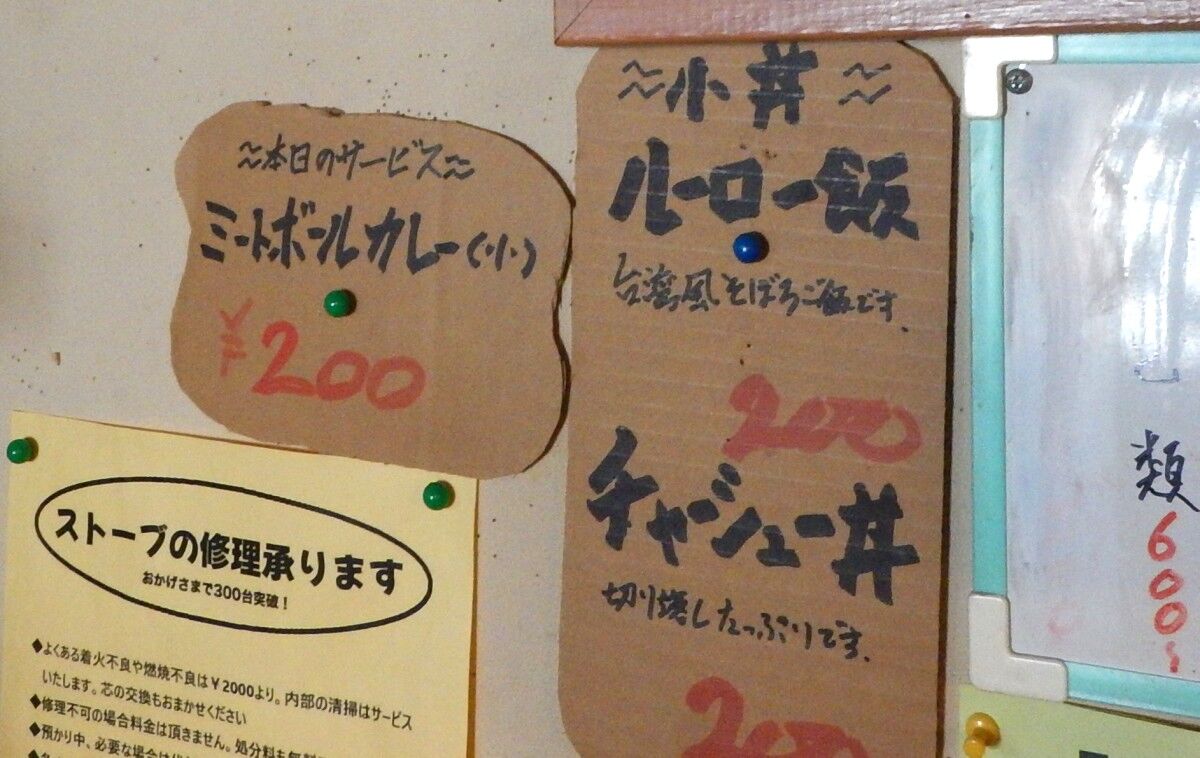 ～本日のサービス～
ミートボールカレー(小)
¥200
～小丼～
ルーロー飯
台湾風そぼろご飯です.
200
チャーシュー丼
切り落としたっぷりです.
200
類
600~
ストーブの修理承ります
おかげさまで300台突破！
◆よくある着火不良や燃焼不良は￥2000より。内部の清掃はサービス
いたします。芯の交換もおまかせください
◆修理不可の場合料金は頂きません。処分料も無料
◆預かり中、必要な場合は代